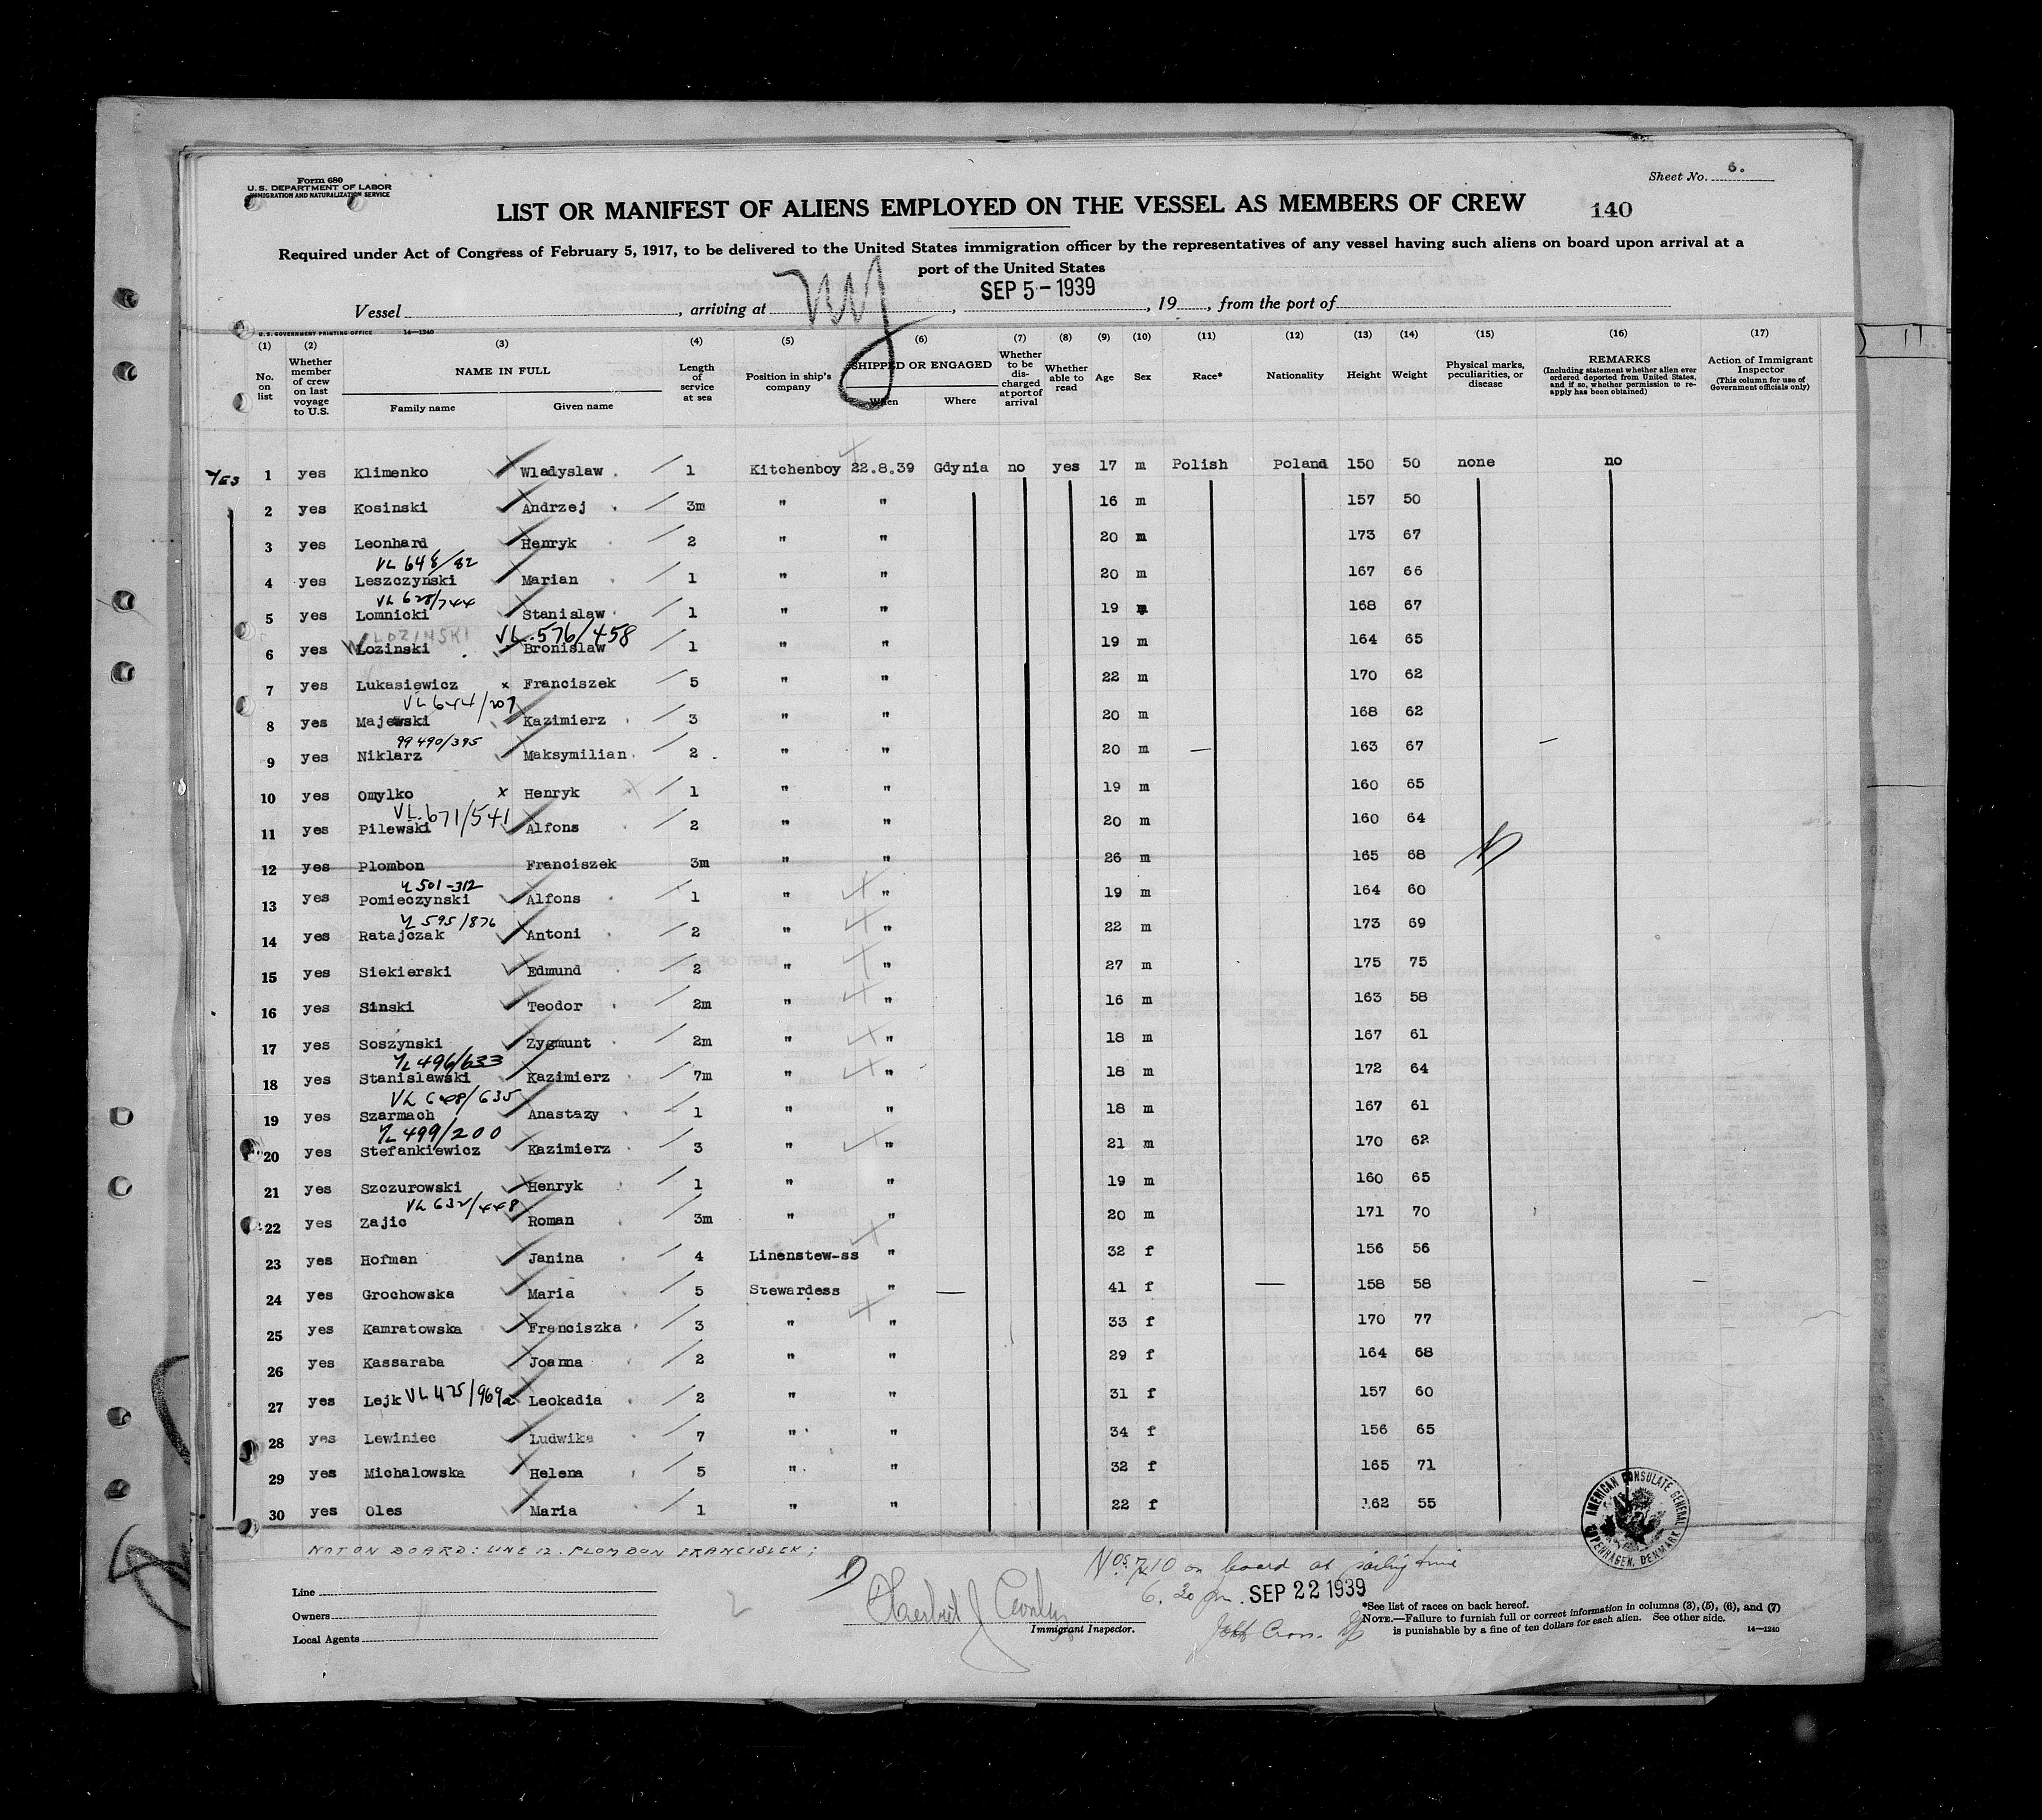 Form 680
U. S. DEPARTMENT OF LABOR
IMMIGRATION AND NATURALIZATION SERVICE
Sheet No. 6.
LIST OR MANIFEST OF ALIENS EMPLOYED ON THE VESSEL AS MEMBERS OF CREW 140
Required under Act of Congress of February 5, 1917, to be delivered to the United States immigration officer by the representatives of any vessel having such aliens on board upon arrival at a
port of the United States
Vessel , arriving at NY , SEP 5-1939 , 19 , from the port of
U. S. GOVERNMENT PRINTING OFFICE 14-1240
(1) (2) (3) (4) (5) (6) (7) (8) (9) (10) (11) (12) (13) (14) (15) (16) (17)
No. on list Whether member of crew on last voyage to U.S. NAME IN FULL Family name Given name Length of service at sea Position in ship's company SHIPPED OR ENGAGED When Where Whether to be discharged at port of arrival Whether able to read Age Sex Race* Nationality Height Weight Physical marks, peculiarities, or disease REMARKS (Including statement whether alien ever ordered deported from United States, and if so, whether permission to reapply has been obtained) Action of Immigrant Inspector (This column for use of Government officials only)
YES 1 yes Klimenko Wladyslaw 1 Kitchenboy 22.8.39 Gdynia no yes 17 m Polish Poland 150 50 none no
2 yes Kosinski Andrzej 3m " " 16 m 157 50
3 yes Leonhard Henryk 2 " " 20 m 173 67
VL 648/82
4 yes Leszczynski Marian 1 " " 20 m 167 66
VL 628/744
5 yes Lomnicki Stanislaw 1 " " 19 m 168 67
LOZINSKI VL.576/458
6 yes Lozinski Bronislaw 1 " " 19 m 164 65
7 yes Lukasiewicz x Franciszek 5 " " 22 m 170 62
VL 644/207
8 yes Majewski Kazimierz 3 " " 20 m 168 62
99490/395
9 yes Niklarz Maksymilian 2 " " 20 m 163 67
10 yes Omylko x Henryk 1 " " 19 m 160 65
VL.671/541
11 yes Pilewski Alfons 2 " " 20 m 160 64
12 yes Plombon Franciszek 3m " " 26 m 165 68
501-312
13 yes Pomieczynski Alfons 1 " " 19 m 164 60
595/876
14 yes Ratajczak Antoni 2 " " 22 m 173 69
15 yes Siekierski Edmund 2 " " 27 m 175 75
16 yes Sinski Teodor 2m " " 16 m 163 58
17 yes Soszynski Zygmunt 2m " " 18 m 167 61
VL 496/633
18 yes Stanislawski Kazimierz 7m " " 18 m 172 64
VL 608/635
19 yes Szarmach Anastazy 1 " " 18 m 167 61
VL 499/200
20 yes Stefankiewicz Kazimierz 3 " " 21 m 170 62
21 yes Szczurowski Henryk 1 " " 19 m 160 65
VL 632/448
22 yes Zajic Roman 3m " " 20 m 171 70
23 yes Hofman Janina 4 Linenstew-ss " 32 f 156 56
24 yes Grochowska Maria 5 Stewardess " 41 f 158 58
25 yes Kamratowska Franciszka 3 " " 33 f 170 77
26 yes Kassaraba Joanna 2 " " 29 f 164 68
27 yes Lejk VL 425/969 Leokadia 2 " " 31 f 157 60
28 yes Lewiniec Ludwika 7 " " 34 f 156 65
29 yes Michalowska Helena 5 " " 32 f 165 71
30 yes Oles Maria 1 " " 22 f 162 55
AMERICAN CONSULATE GENERAL COPENHAGEN, DENMARK
NOT ON BOARD: LINE 12. PLOMBON FRANCISZEK;
Nos 7, 10 on board at sailing time
6.30 pm. SEP 22 1939
Line
Owners
Local Agents
Immigrant Inspector.
*See list of races on back hereof.
NOTE.—Failure to furnish full or correct information in columns (3), (5), (6), and (7)
is punishable by a fine of ten dollars for each alien. See other side.
14-1240